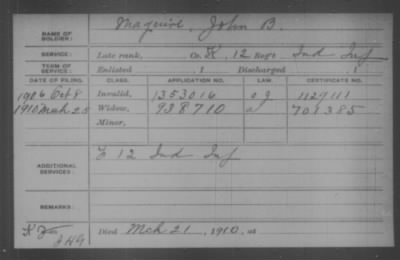 NAME OF SOLDIER: Maguire, John B.
SERVICE: Late rank, Co. K, 12 Reg't Ind Inf
TERM OF SERVICE: Enlisted , 1 Discharged , 1
DATE OF FILING. CLASS. APPLICATION NO. LAW. CERTIFICATE NO.
1906 Oct 8 Invalid, 1353016 1129111
1910 Mch 25 Widow, 938710 709385
Minor,
ADDITIONAL SERVICES: E 12 Ind Inf
REMARKS:
Died Mch 21, 1910, at